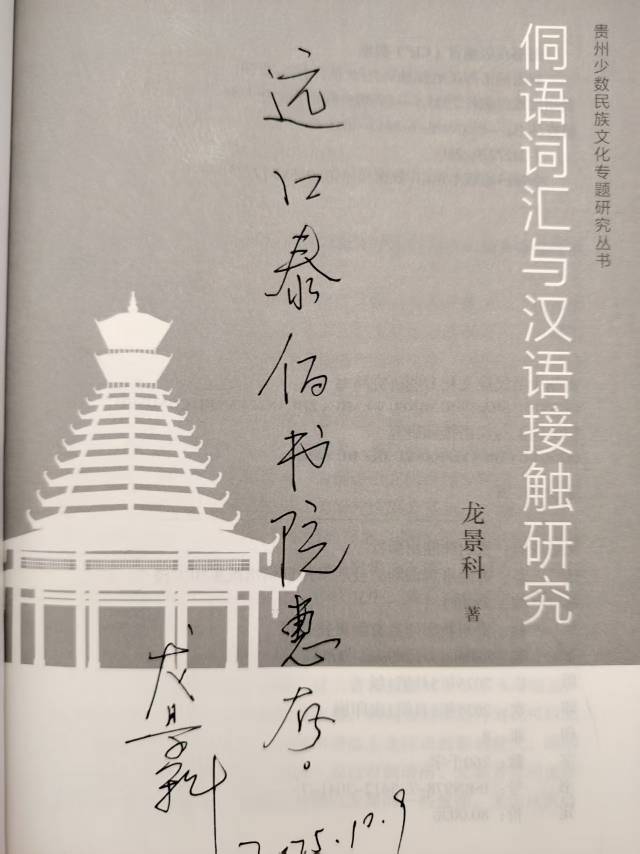 贵州少数民族文化专题研究丛书
侗语词汇与汉语接触研究
龙景科 著
远口泰伯书院惠存。
龙景科
2025.12.9